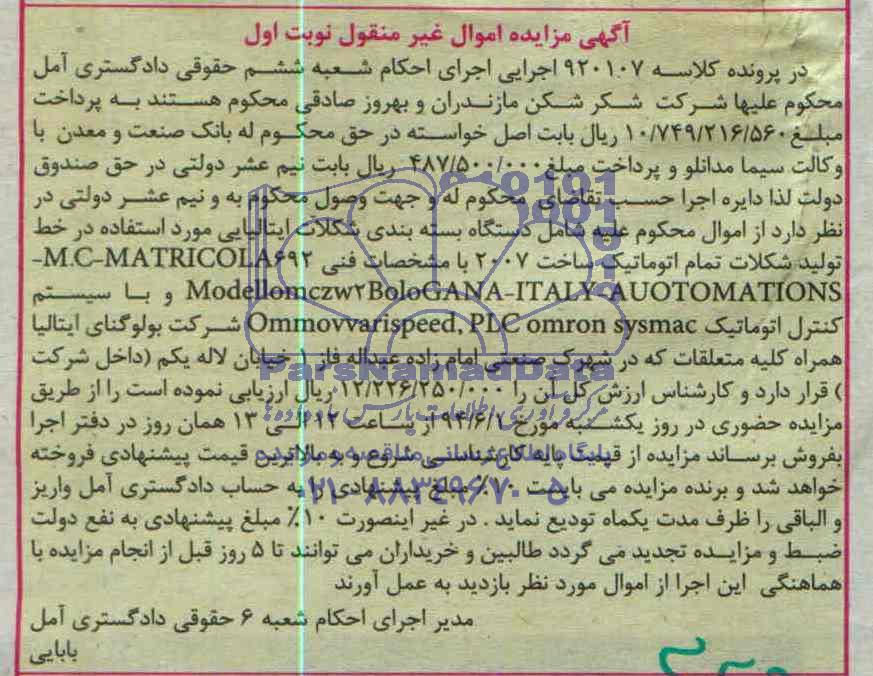 آگهی مزایده اموال غیر منقول نوبت اول
در پرونده کلاسه ۹۲۰۱۰۷ اجرایی اجرای احکام شعبه ششم حقوقی دادگستری آمل
محکوم علیها شرکت شکر شکن مازندران و بهروز صادقی محکوم هستند به پرداخت
مبلغ ۱۰/۷۴۹/۲۱۶/۵۶۰ ریال بابت اصل خواسته در حق محکوم له بانک صنعت و معدن با
وکالت سیما مدانلو و پرداخت مبلغ ۴۸۷/۵۰۰/۰۰۰ ریال بابت نیم عشر دولتی در حق صندوق
دولت لذا دایره اجرا حسب تقاضای محکوم له و جهت وصول محکوم به و نیم عشر دولتی در
نظر دارد از اموال محکوم علیه شامل دستگاه بسته بندی شکلات ایتالیایی مورد استفاده در خط
تولید شکلات تمام اتوماتیک ساخت ۲۰۰۷ با مشخصات فنی M.C-MATRICOLA۶۹۲-
Modellomczw۲BoloGANA-ITALY-AUOTOMATIONS و با سیستم
کنترل اتوماتیک Ommovvarispeed, PLC omron sysmac شرکت بولوگنای ایتالیا
همراه کلیه متعلقات که در شهرک صنعتی امام زاده عبداله فاز ۱ خیابان لاله یکم (داخل شرکت
) قرار دارد و کارشناس ارزش کل آن را ۱۲/۲۲۶/۲۵۰/۰۰۰ ریال ارزیابی نموده است را از طریق
مزایده حضوری در روز یکشنبه مورخ ۹۴/۶/۱ از ساعت ۱۲ الی ۱۳ همان روز در دفتر اجرا
بفروش برساند مزایده از قیمت پایه کارشناسی شروع و به بالاترین قیمت پیشنهادی فروخته
خواهد شد و برنده مزایده می بایست ۱۰٪ مبلغ پیشنهادی را به حساب دادگستری آمل واریز
و الباقی را ظرف مدت یکماه تودیع نماید . در غیر اینصورت ۱۰٪ مبلغ پیشنهادی به نفع دولت
ضبط و مزایده تجدید می گردد طالبین و خریداران می توانند تا ۵ روز قبل از انجام مزایده با
هماهنگی این اجرا از اموال مورد نظر بازدید به عمل آورند
مدیر اجرای احکام شعبه ۶ حقوقی دادگستری آمل
بابایی
ParsNamadData
۰۲۱-۸۸۳۴۹۶۷۰-۵